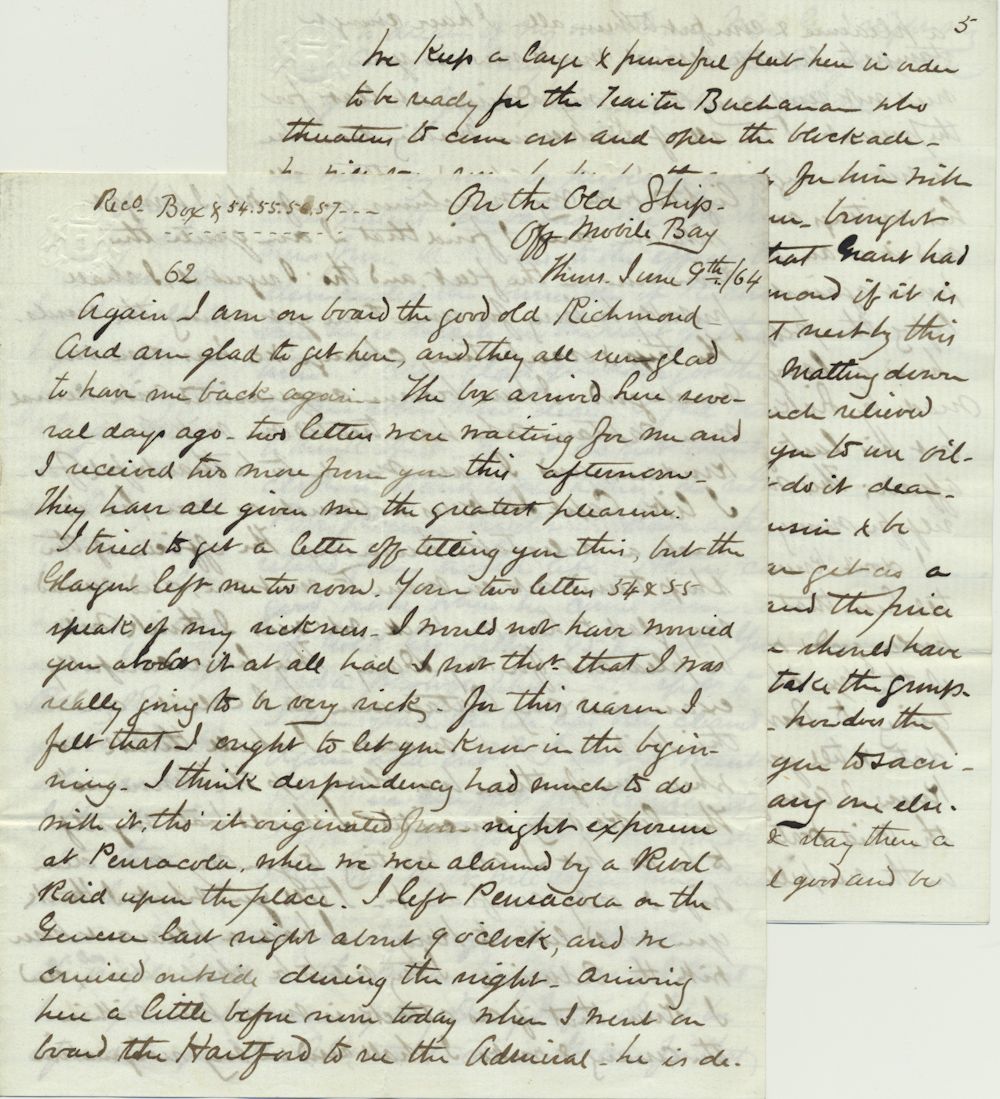 5
We keep a large & powerful fleet here in order
to be ready for the Traitor Buchanan who
threatens to come out and open the blockade -
for him with
brought
that Grant had
mond if it is
t rest by this
Matting down
uch relieved
you to use oil-
do it dear -
usin & be
an get as a
and the price
should have
take the group.
- how does the
you to sacri-
any one else.
& stay there a
l good and be
Recd. Box & 54.55.56.57 - - -
On the Old Ship -
Off Mobile Bay
62
Thurs. June 9th/64
Again I am on board the good old Richmond -
And am glad to get here, and they all seem glad
to have me back again - The box arrived here seve-
ral days ago - two letters were waiting for me and
I received two more from you this afternoon -
They have all given me the greatest pleasure.
I tried to get a letter off telling you this, but the
Glasgow left me too soon. Your two letters 54 & 55
speak of my sickness - I would not have worried
you about it at all had I not thot. that I was
really going to be very sick - for this reason I
felt that I ought to let you know in the begin-
ning - I think despondency had much to do
with it, tho' it originated from night exposure
at Pensacola, when we were alarmed by a Rebel
Raid upon the place. I left Pensacola on the
Genesee last night about 9 o'clock, and we
cruised outside during the night - arriving
here a little before noon today when I went on
board the Hartford to see the Admiral - he is de-